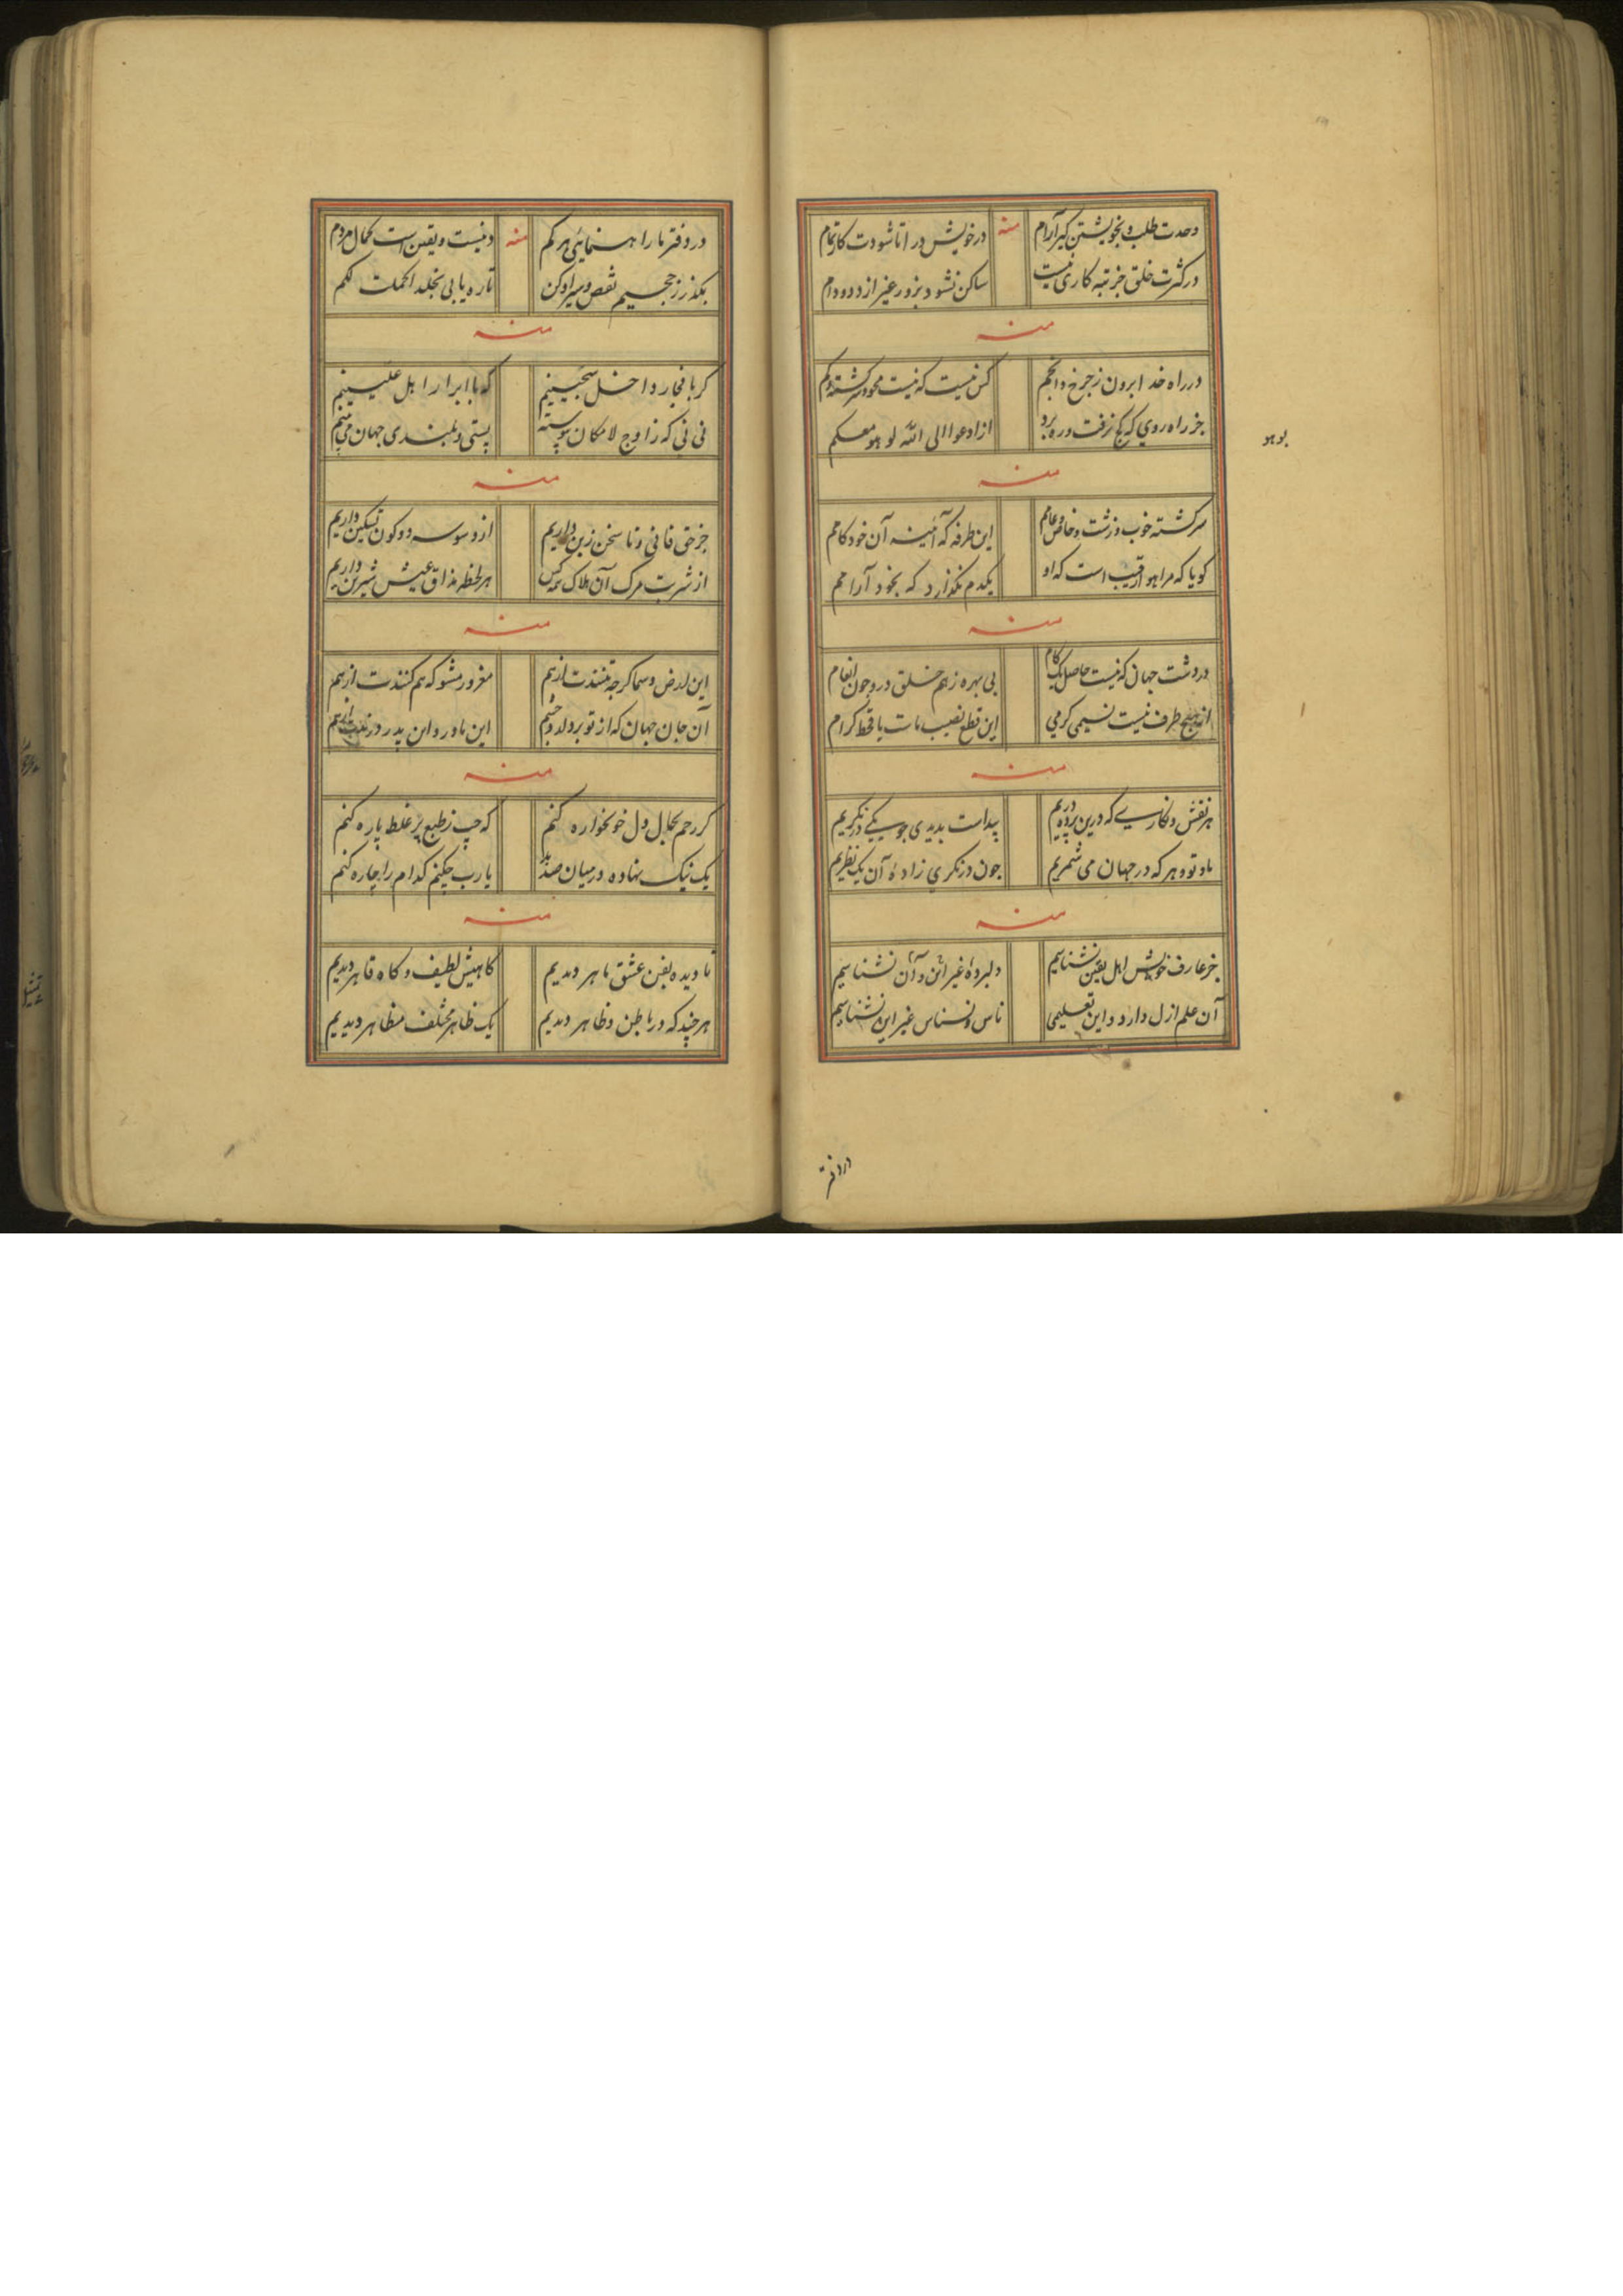 وحدت طلب و بخویشتن گیر آرام
منه
در خویش در آ تا شودت کار تمام
در کثرت خلق جز تبه کاری نیست
ساکن نشود بزور غیر از دد و دام
منه
در راه خدا برون ز چرخ و انجم
کس نیست که نیست محو و سرگشته و گم
جز راه روی که کج نرفت و ره برد
از ادعوا الی الله لو هو معکم
بو هو
منه
سرگشته خوب و زشت و خاص و عامم
این طرفه که آئینه آن خود کامم
گویا که مرا هم او رقیب است که او
یکدم نگذارد که بخود آرامم
منه
در دشت جهان که نیست حاصل یک کام
بی بهره ز هم خلق در و چون انعام
از هیچ طرف نیست نسیمی کرمی
این قطع نصیب مات یا قحط کرام
منه
هر نقش و نگاری که درین پرده دریم
پیداست بدیدی چو یکی درنگریم
ما و تو و هر که در جهان می شمریم
چون درنگری زاده آن یک نظریم
منه
جز عارف خویش اهل یقین نشناسیم
دلبرده غیر این و آن نشناسیم
آن علم ازل دارد و این تعلیمی
ناس و نسناس غیر این نشناسیم
در دفتر
در دفتر ما راهنمائی هر کم
منه
دنیست و یقین است کمال مردم
بگذر ز جحیم نقص و سیر او کن
تا ره یابی بخلد اکملت لکم
منه
گر با فجار داخل سجینیم
که با ابرار اهل علیینیم
نی نی که ز اوج لامکان پیوسته
پستی و بلندی جهان می بینم
منه
جز حق فانی و ما سخن زین داریم
از وسوسه دو کون تسکین داریم
از شربت مرگ آن هلاک همه کس
هر لحظه مذاق عیش شیرین داریم
منه
این ارض و سما گرچه تنندت از هم
مغرور مشو که هم کنندت از هم
آن جان جهان که از تو برد
این مادر و این پدر در
منه
گر رحم بحال دل خونخواره کنم
که جیب ز طبع پر غلط پاره کنم
یک نیک نهاده در میان صد بد
یارب چکنم کدام را چاره کنم
منه
تا دیده بفن عشق ماهر دیدیم
گاهیش لطیف و گاه قاهر دیدیم
هر چند که در باطن و ظاهر دیدیم
یک ظاهر مختلف مظاهر دیدیم